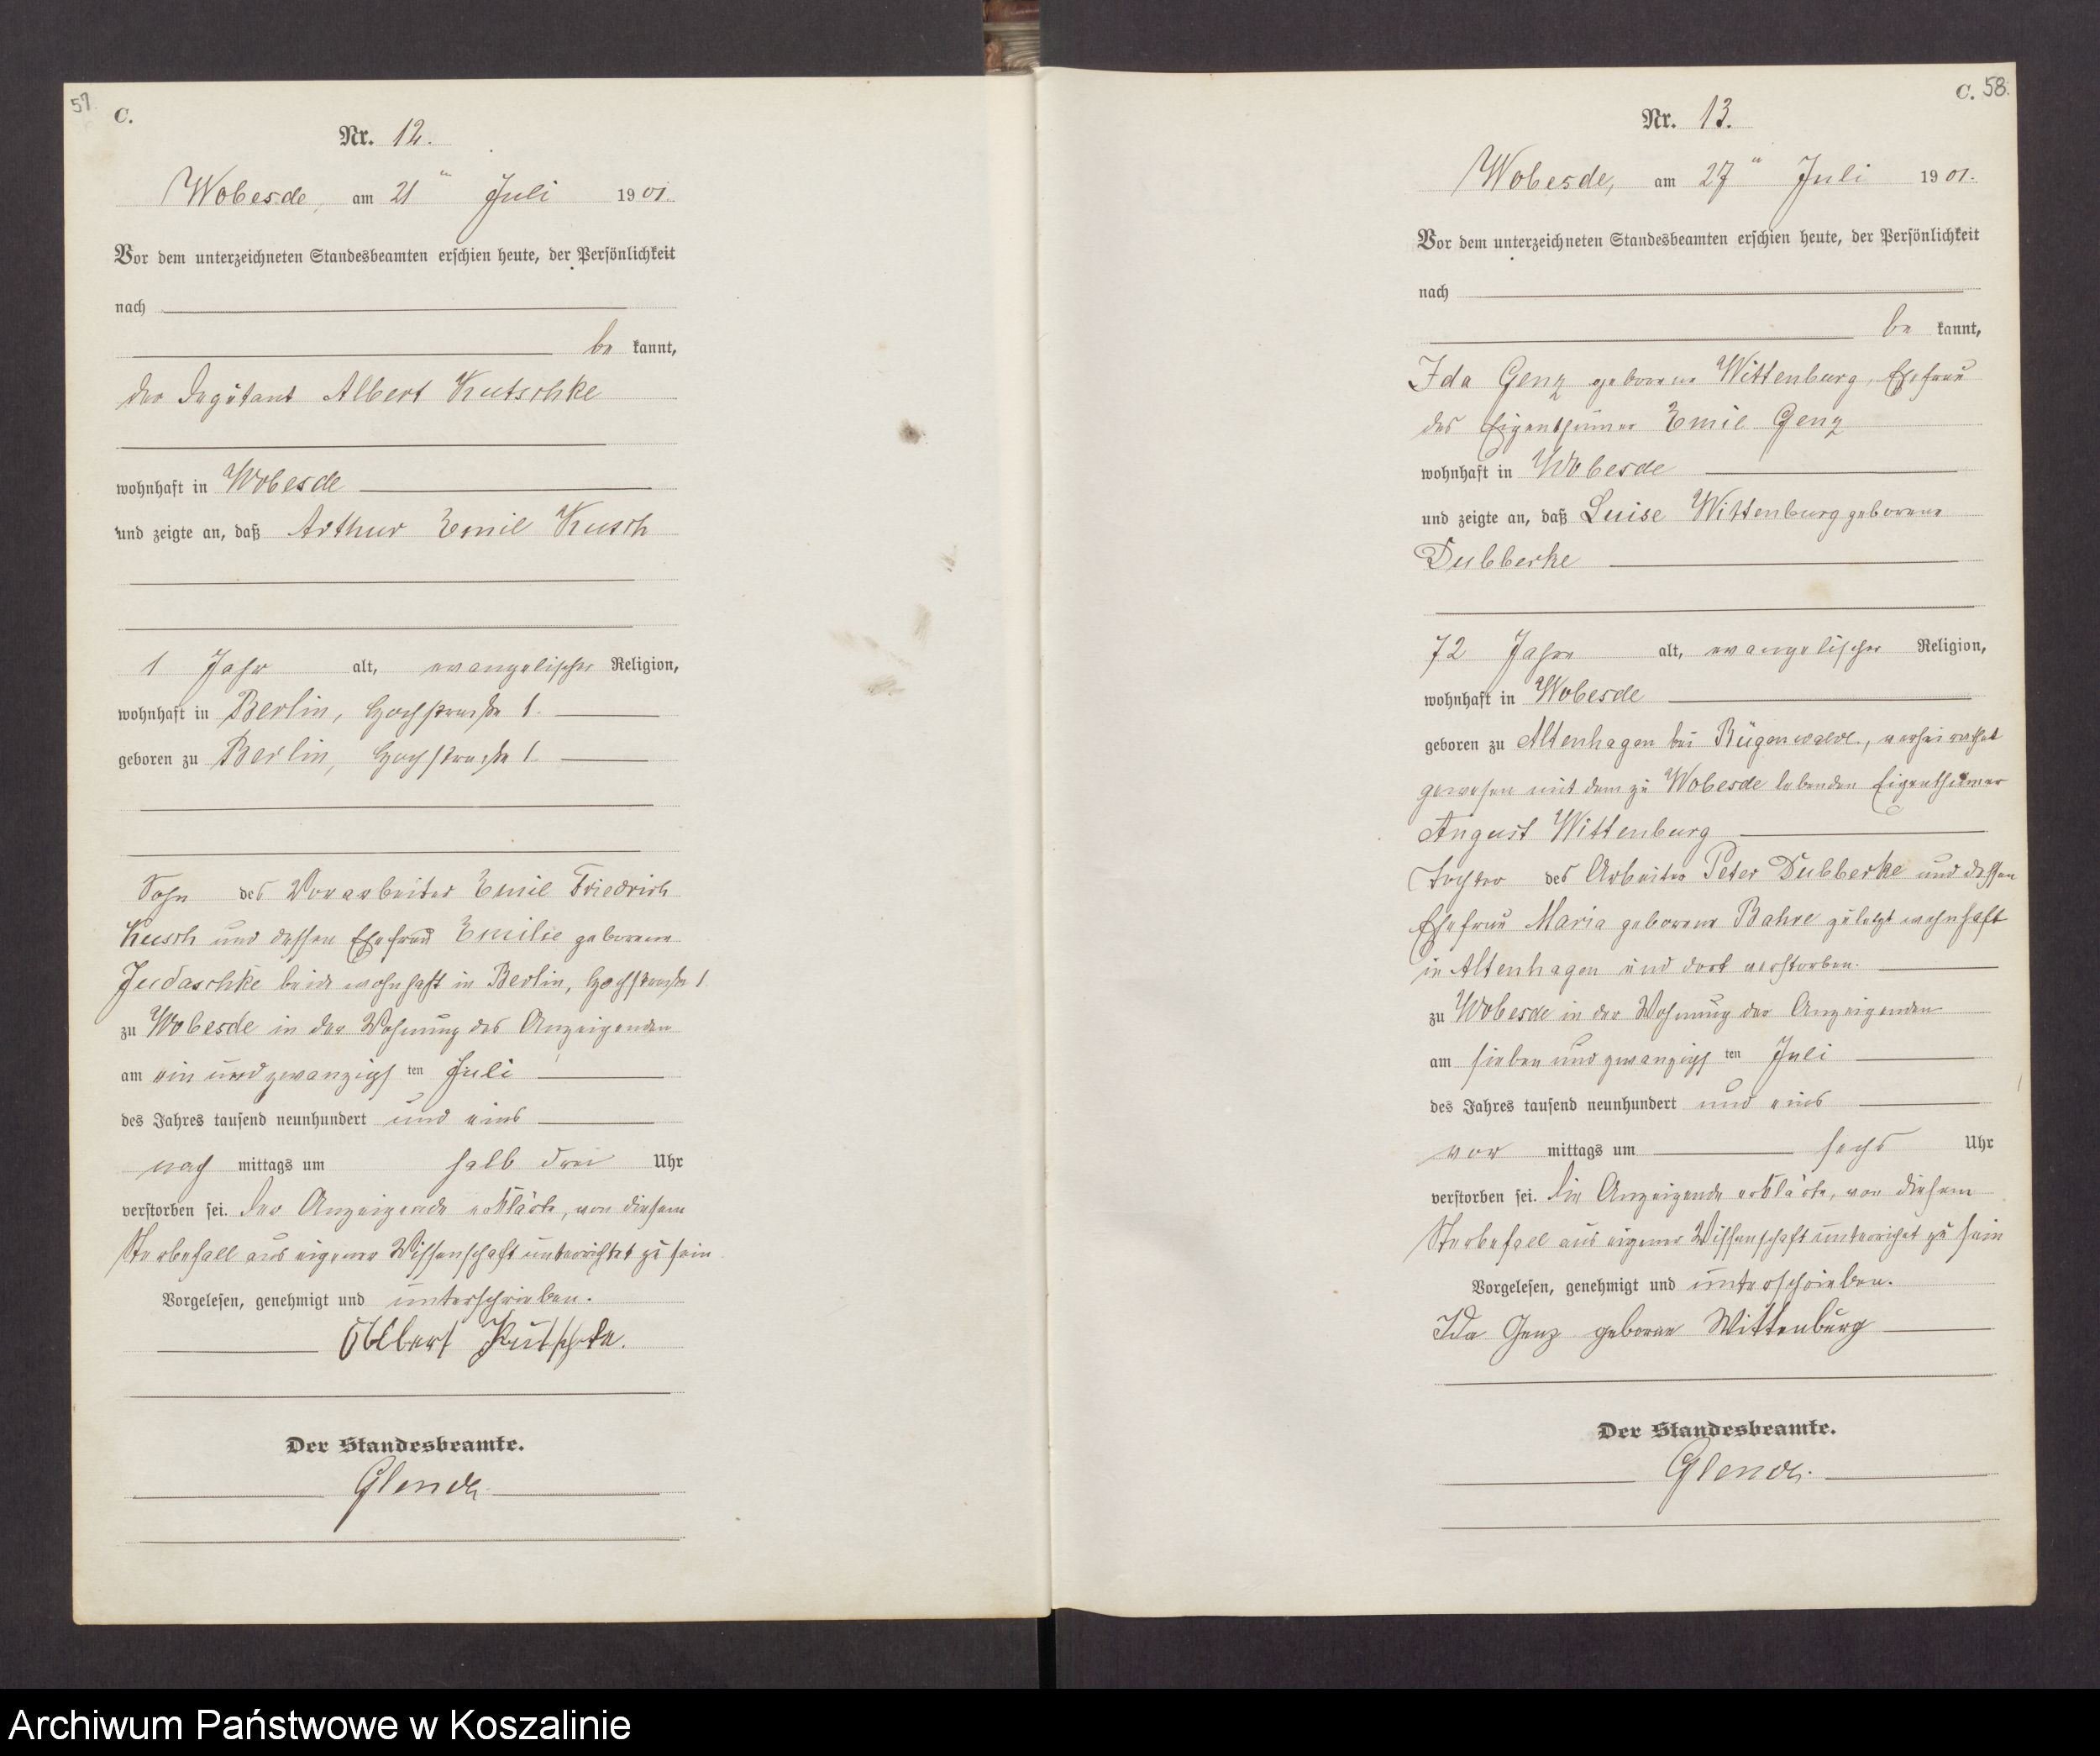 57.
C.
Nr. 12.
Wobesde, am 21ten Juli 1901.
Vor dem unterzeichneten Standesbeamten erschien heute, der Persönlichkeit
nach
be kannt,
der Deputant Albert Kutschke
wohnhaft in Wobesde
und zeigte an, daß Arthur Emil Kusch
1 Jahr alt, evangelischer Religion,
wohnhaft in Berlin, Hochstraße 1.
geboren zu Berlin, Hochstraße 1.
Sohn des Vorarbeiter Emil Friedrich
Kusch und dessen Ehefrau Emilie geborene
Judaschke beide wohnhaft in Berlin, Hochstraße 1
zu Wobesde in der Wohnung des Anzeigenden
am ein und zwanzigs ten Juli
des Jahres tausend neunhundert und eins
nach mittags um halb drei Uhr
verstorben sei. Der Anzeigende erklärte, von diesem
Sterbefall aus eigener Wissenschaft unterrichtet zu sein
Vorgelesen, genehmigt und unterschrieben.
Albert Kutschke.
Der Standesbeamte.
Glende.
C. 58.
Nr. 13.
Wobesde, am 27ten Juli 1901.
Vor dem unterzeichneten Standesbeamten erschien heute, der Persönlichkeit
nach
be kannt,
Ida Genz geborene Wittenburg, Ehefrau
des Eigenthümer Emil Genz
wohnhaft in Wobesde
und zeigte an, daß Luise Wittenburg geborene
Dubberke
72 Jahre alt, evangelischer Religion,
wohnhaft in Wobesde
geboren zu Altenhagen bei Rügenwalde, verheirathet
gewesen mit dem zu Wobesde lebenden Eigenthümer
August Wittenburg
Tochter des Arbeiter Peter Dubberke und dessen
Ehefrau Maria geborene Bahre zuletzt wohnhaft
in Altenhagen und dort verstorben.
zu Wobesde in der Wohnung der Anzeigenden
am sieben und zwanzigs ten Juli
des Jahres tausend neunhundert und eins
vor mittags um sechs Uhr
verstorben sei. Die Anzeigende erklärte, von diesem
Sterbefall aus eigener Wissenschaft unterrichtet zu sein
Vorgelesen, genehmigt und unterschrieben.
Ida Genz geborene Wittenburg
Der Standesbeamte.
Glende.
Archiwum Państwowe w Koszalinie